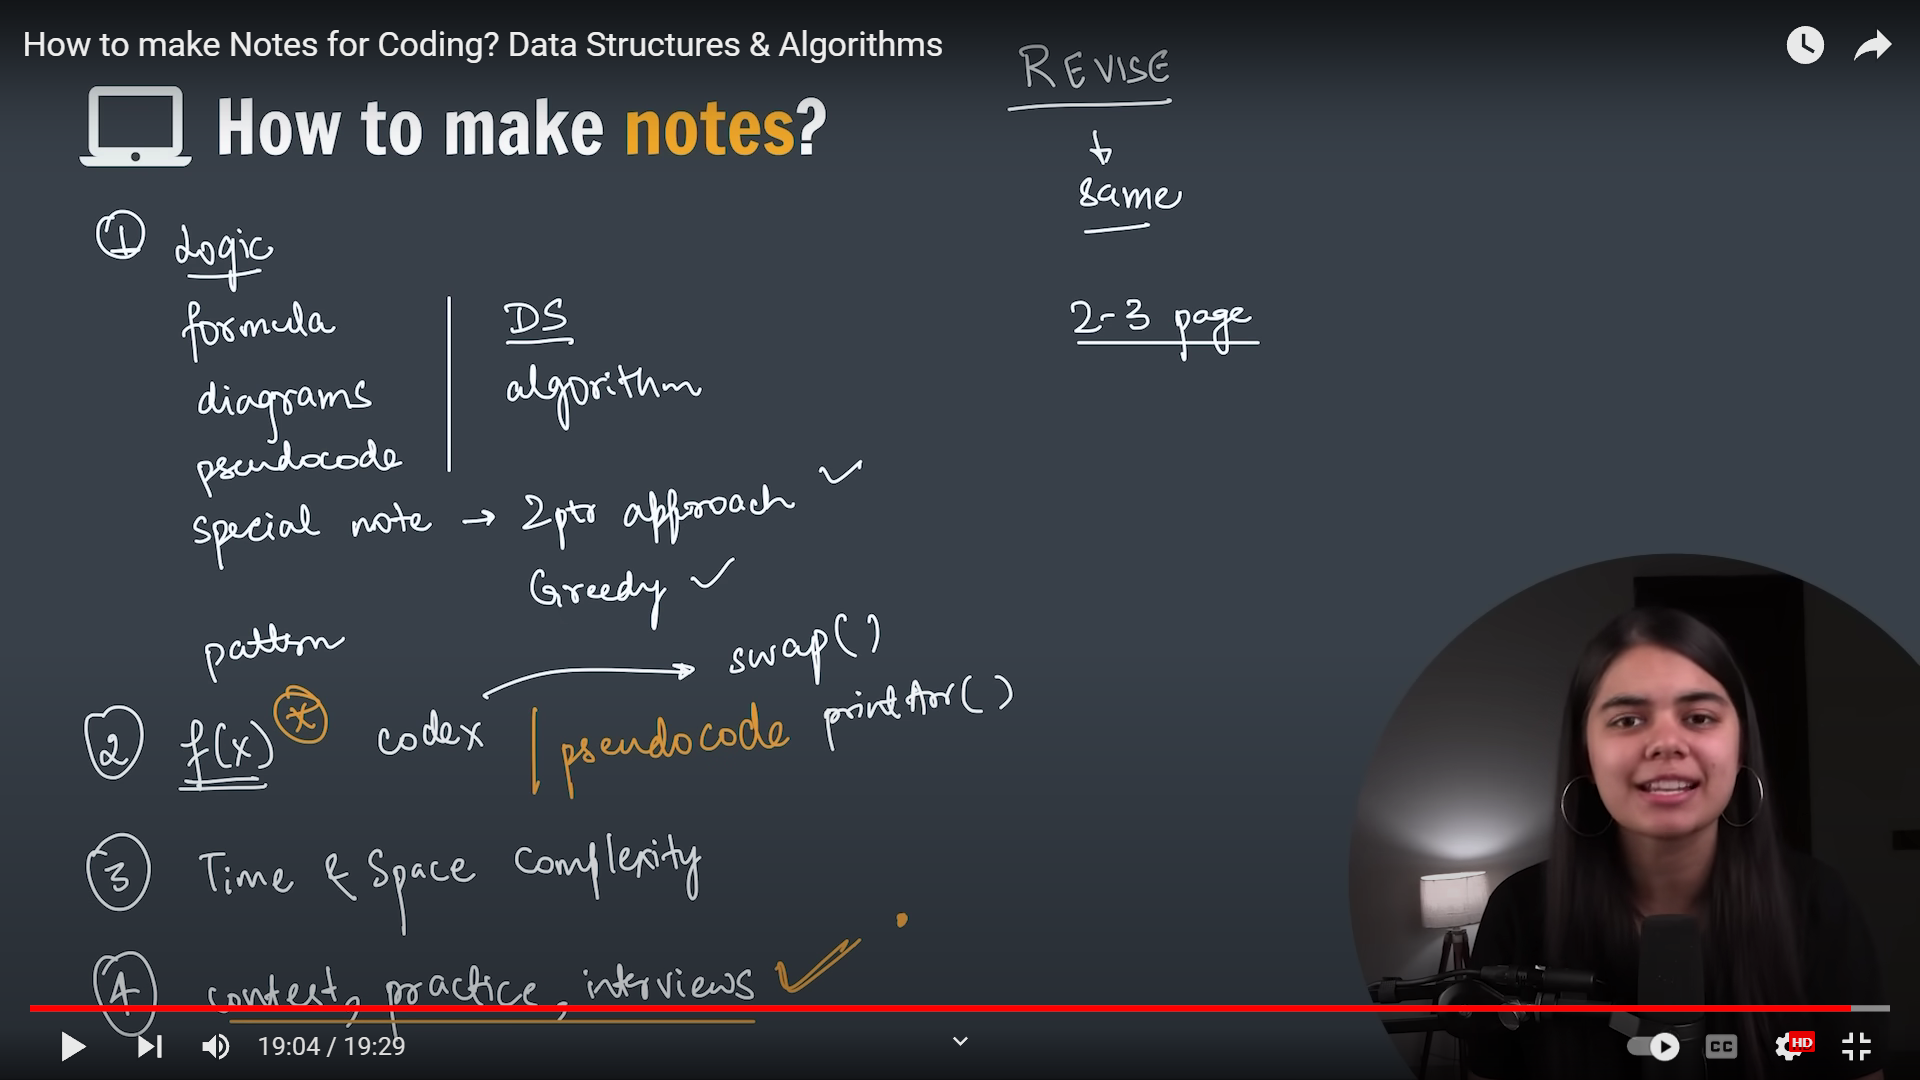 How to make Notes for Coding? Data Structures & Algorithms
How to make notes?
REVISE
same
2-3 page
① Logic
formula
diagrams
pseudocode
DS
algorithm
special note → 2ptr approach ✓
Greedy ✓
pattern
② f(x) * codex | pseudocode
swap()
printArr()
③ Time & Space Complexity
④ contest, practice, interviews ✓
19:04 / 19:29
CC
HD